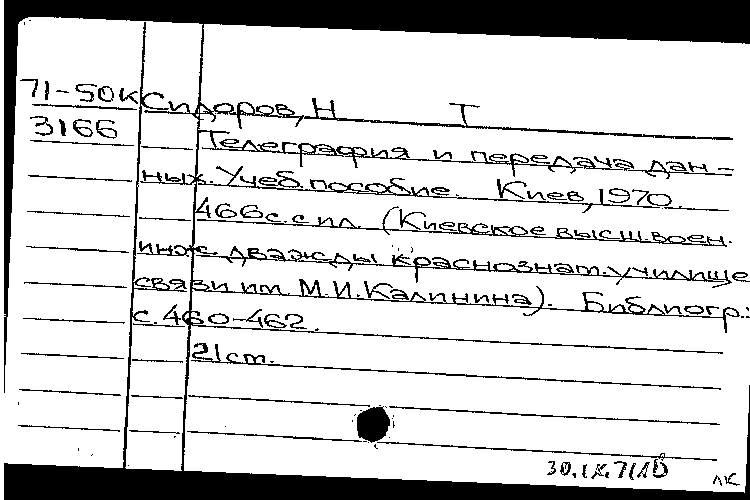 71-50К Сидоров, Н Т
3166 Телеграфия и передача дан-
ных. Учеб. пособие. Киев, 1970.
466 с. с ил. (Киевское высш. воен.
инж. дважды краснознам. училище
связи им М.И. Калинина). Библиогр.:
с. 460-462.
21 cm.
30.IX.71
ЛК